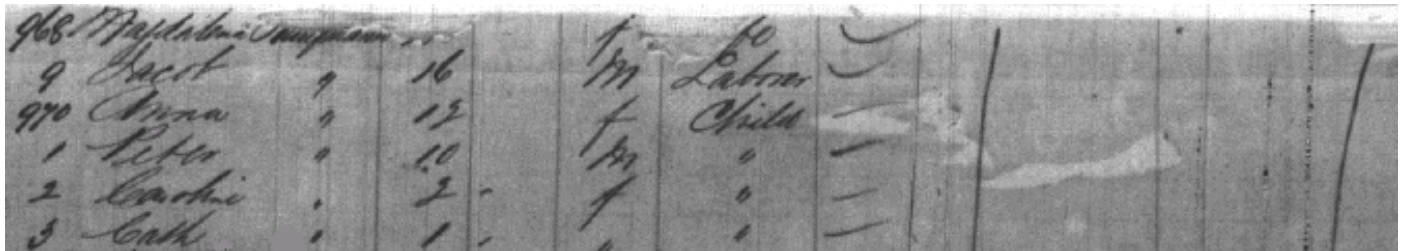 968 Magdalena f
9 Jacob " 16 M Laborer
970 Anna " 12 f Child
1 Peter " 10 M "
2 Caroline " 2 f "
3 Cath " 1 " "